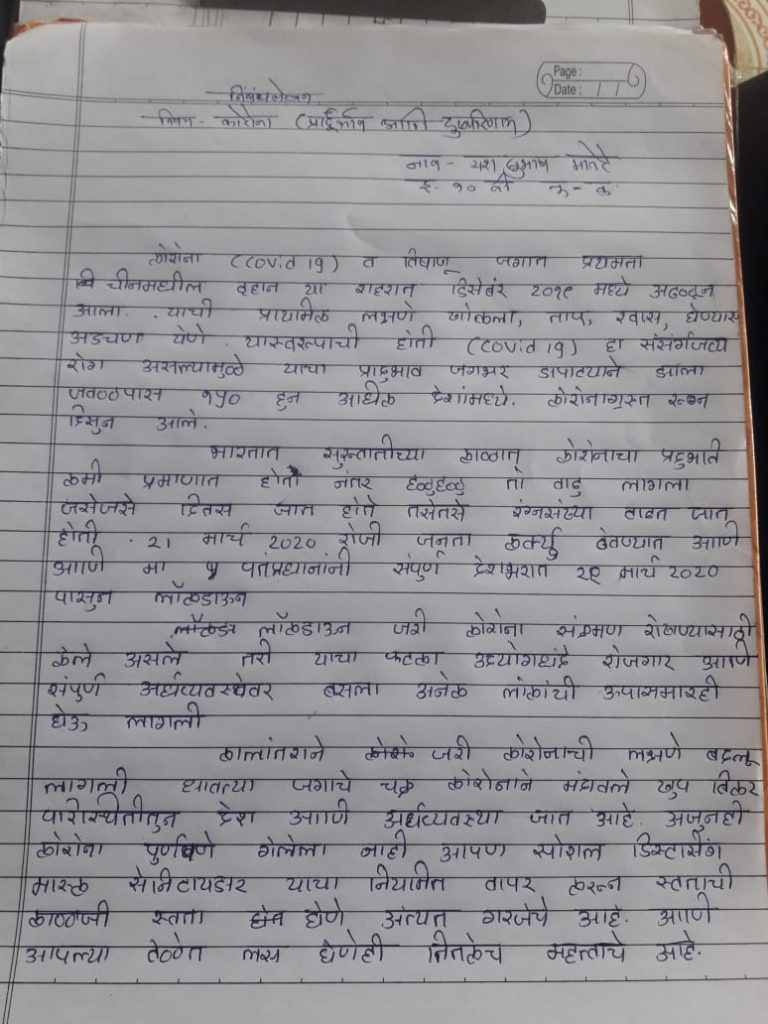 Page :
Date : / /
निबंधलेखन
विषय - कोरोना (प्रार्दुर्भाव आणि दुष्परिणाम)
नाव - यश सुभाष
इ. १० वी क
कोरोना (covid 19) व विषाणू जगात प्रथमता
चीनमधील वुहान या शहरात डिसेंबर २०१९ मध्ये अढळून
आला. याची प्राथमिक लक्षणे खोकला, ताप, श्वास, घेण्यास
अडचण येणे. यास्वरूपाची होती (covid 19) हा संसंर्गजन्य
रोग असल्यामुळे याचा प्रादुभाव जगभर झपाट्याने झाला
जवळपास १५० हुन आधीक देशांमध्ये. कोरोनाग्रस्त रूग्न
दिसुन आले.
भारतात सुरूवातीच्या काळात कोरोनाचा प्रदुभाव
कमी प्रमाणात होता नंतर हळुहळु तो वाढु लागला
जसेजसे दिवस जात होते तसेतसे रूग्नसंख्या वाढत जात
होती. 21 मार्च 2020 रोजी जनता कर्फ्यु ठेवण्यात आणि
आणि मा पंतप्रधानांनी संपुर्ण देशभरात २९ मार्च 2020
पासुन लॉकडाऊन
लॉकडाऊन जरी कोरोना संक्रमण रोखण्यासाठी
केले असले तरी याचा फटका उदयोगधंदे रोजगार आणि
संपुर्ण अर्थव्यवस्थेवर बसला अनेक लोकांची ऊपासमारही
होऊ लागली
कालांतराने जरी कोरोनाची लक्षणे बदलू
लागली धावत्या जगाचे चक्र कोरोनाने मंदावले खुप बिकट
पारीस्थीतीतुन देश आणि अर्थव्यवस्था जात आहे. अजुनही
कोरोना पुर्णपणे गेलेला नाही आपण सोशल डिस्टासिंग
मास्क सेनिटायझर याचा नियमित वापर करून स्वताची
काळजी स्वता घेणे अत्यत गरजेचे आहे. आणि
आपल्या वेळेत लस घेणेही तितकेच महत्वाचे आहे.